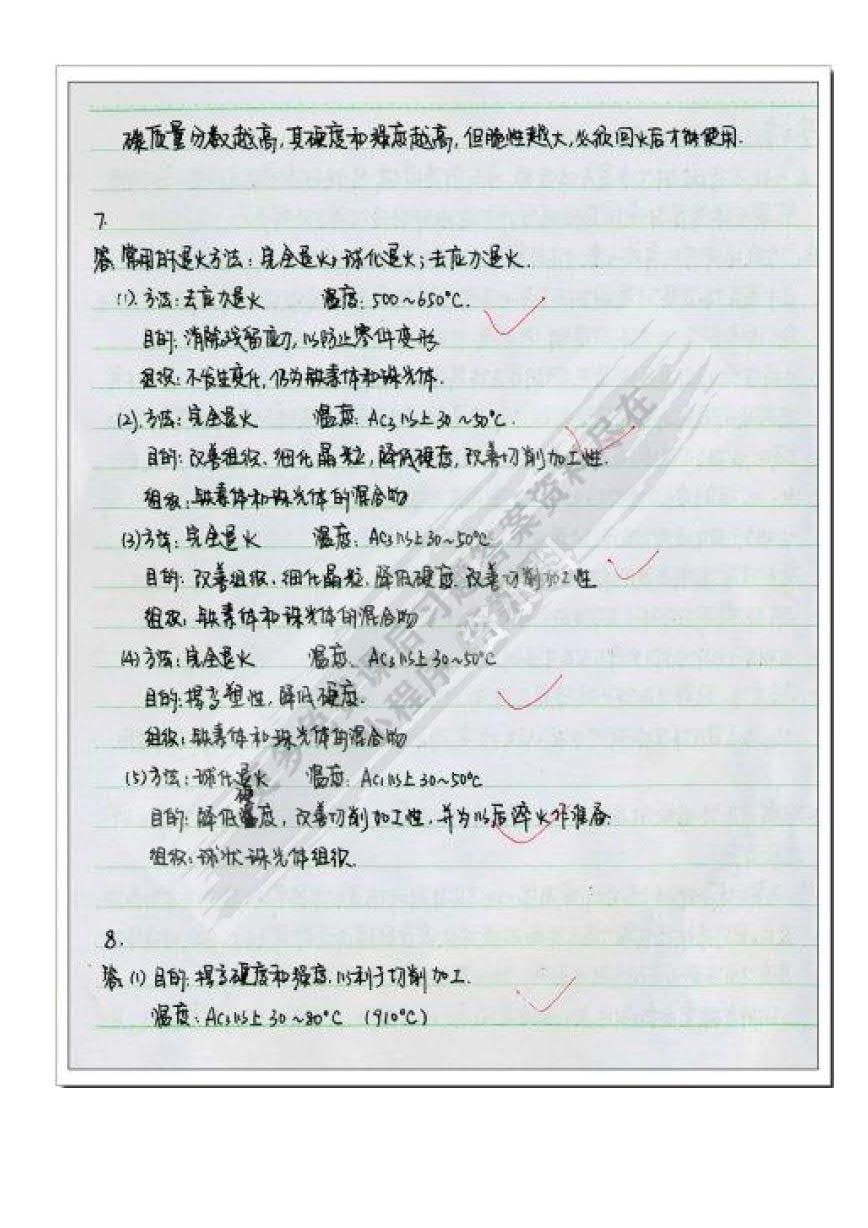 碳质量分数越高,其硬度和强度越高,但脆性越大,必须回火后才能使用.
7.
答:常用的退火方法:完全退火;球化退火;去应力退火.
(1).方法:去应力退火 温度:500~650°C.
目的:消除残留应力,以防止零件变形
组织:不发生变化,仍为铁素体和珠光体.
(2).方法:完全退火 温度:Ac₃以上30~50°C.
目的:改善组织、细化晶粒,降低硬度,改善切削加工性.
组织:铁素体和珠光体的混合物
(3)方法:完全退火 温度:Ac₃以上30~50°C
目的:改善组织、细化晶粒、降低硬度、改善切削加工性
组织:铁素体和珠光体的混合物
(4)方法:完全退火 温度:Ac₃以上30~50°C
目的:提高塑性,降低硬度.
组织:铁素体和珠光体的混合物
(5)方法:球化退火 温度:Ac₁以上30~50°C
目的:降低硬度,改善切削加工性,并为以后淬火作准备.
组织:球状珠光体组织.
8.
答:(1)目的:提高硬度和强度.以利于切削加工.
温度:Ac₃以上30~80°C (910°C)
小程序